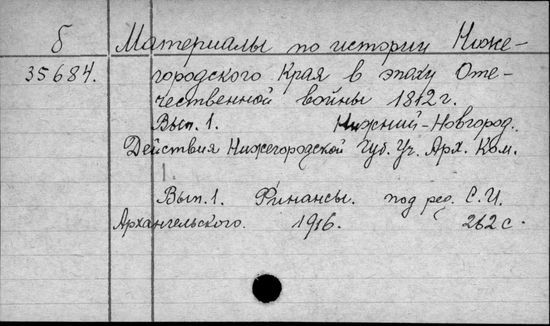 б Материалы по истории Ниже-
35684. городского Края в эпоху Оте-
чественной войны 1812 г.
Вып. 1. Нижний-Новгород.
Действия Нижегородской Губ. Уч. Арх. Ком.
1.
Вып. 1. Финансы. под ред. С. И.
Архангельского. 1916. 262 с.